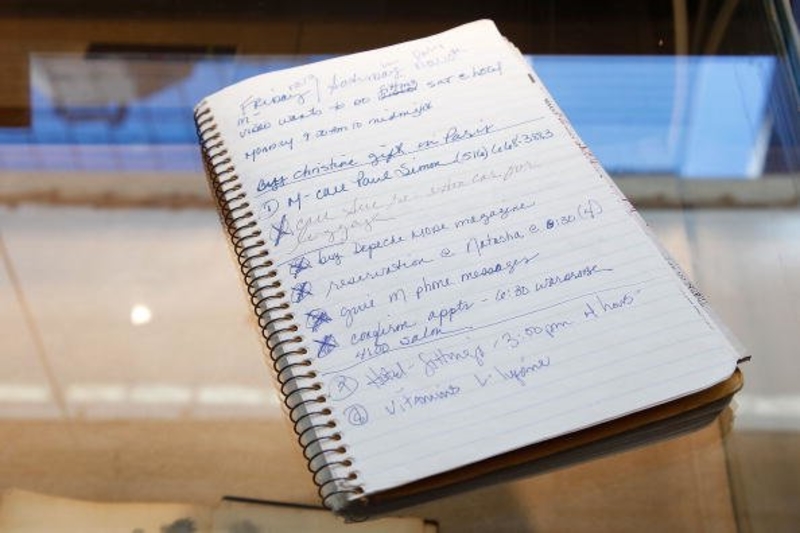 Friday 10/9 / Saturday
M- video wants to do sat @ hotel
Monday 9:00am to midnight
Buy christine gift in Paris
① M- call Paul Simon (516) 668-3583
call Sue re extra car for
luggage
buy Depeche Mode magazine
reservation @ Natasha @ 8:30 (4)
give M phone messages
confirm appts - 6:30 warehouse
4:00 salon
② Hotel - fittings - 3:30pm 4 hours
④ vitamins L-lysine